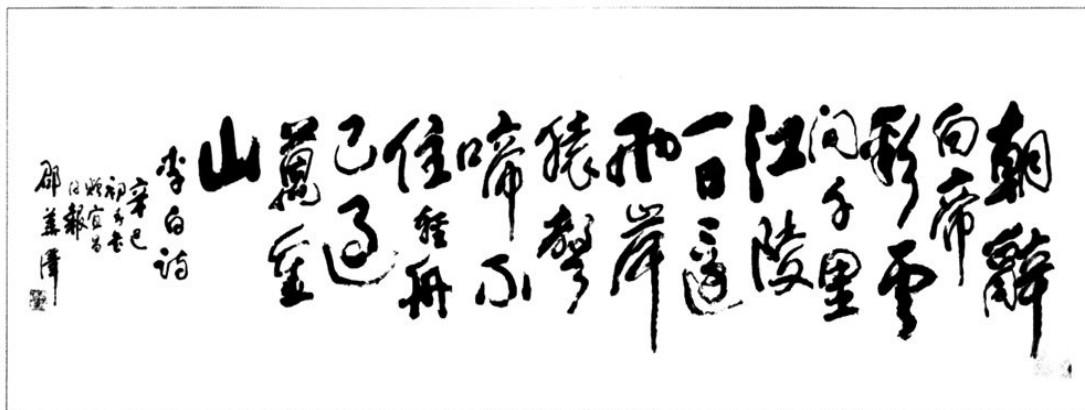 朝辭
白帝
彩雲
間千里
江陵
一日還
兩岸
猿聲
啼不
住輕舟
已過
萬重
山
李白詩
辛巳
初冬書
宜昌
日報
邵華澤